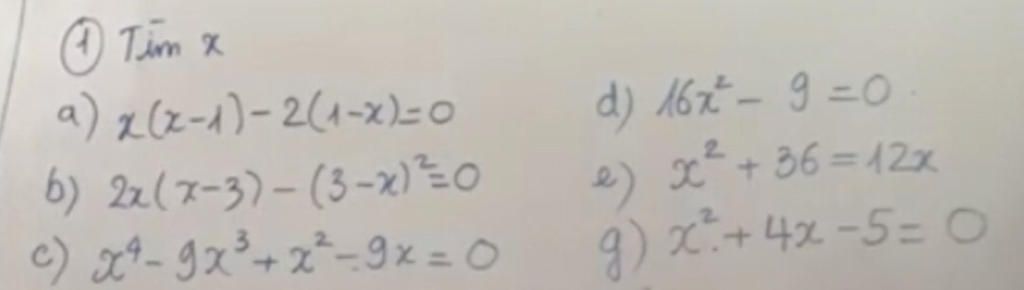 ① Tìm x
a) x(x-1)-2(1-x)=0
b) 2x(x-3)-(3-x)²=0
c) x⁴-9x³+x²-9x=0
d) 16x²-9=0
e) x²+36=12x
g) x²+4x-5=0